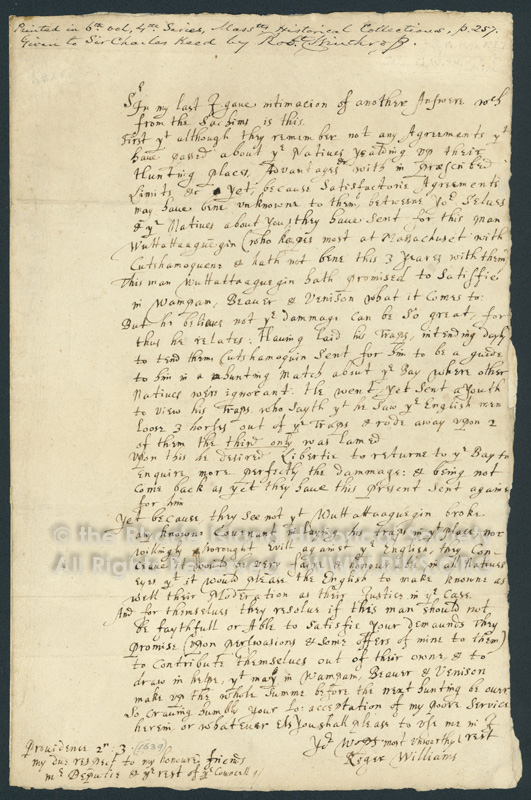 Printed in 6th vol, 4th Series, Massts Historical Collections, p. 257.
Given to Sir Charles Reed by Robt Winthrop.
Sr
In my last I gave intimacion of another Answere wch
from the Sachims is this.
First yt although they remember not any Agreements yt
have passed about ye Natives yealding up their
Hunting places, Advantages with in præscribed
Limits &c yet, because Satisfactorie Agreements
may have bene unknowne to them, betweene Yor Selves
& ye Natives about You, they have sent for this man
Wuttattaaquegin (who keepes most at Manachuset with
Cutshamoquene & hath not bene this 3 yeares with them
This man Wuttattaaquegin hath promised to Satisfie
in Wampam, Beaver & Venison what it comes to:
But he believes not ye dammage can be so great, for
thus he relates: Having laid his Traps, intending dayly
to tend them Cutshamoquin sent for him to be a guide
to him in a hunting Match about ye Bay where other
Natives were ignorant: He went, yet sent a Youth
to view his Traps, who sayth yt he saw ye English men
loose 3 horses out of ye Traps & rode away upon 2
of them the third only was lamed
Upon this he desired Libertie to returne to ye Bay to
enquire more perfectly the dammage: & being not
come back as yet they have this present sent againe
for him
Yet because they see not yt Wuttattaaquegin broke
any knowne Covenant in laying his traps in yt place nor
willingly wrought Evill against ye English, they Con-
ceave it would be very faire & honourable in all Natives
Eyes yt it would please the English to make knowne as
well their Moderation as their Justice in ye Case.
And for themselves they resolve if this man should not
be faythfull or Able to satisfie your demaunds they
promise (upon perswasions & some offers of mine to them)
to contribute themselves out of their owne, & to
draw in helpe, yt may in Wampam, Beaver & Venison
make up the whole summe before the next hunting be over
So, craving humbly your Lo: acceptation of my poore Service
herein or whatever els you shall please to use me in I
rest
Yor Wops most unworthy
Roger Williams
Providence 2d. 3. (1639)
my due respect to my honoured friends
mr Deputie & ye rest of ye Councell